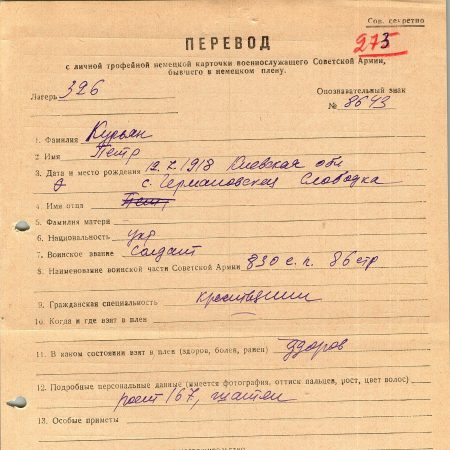 Сов. секретно
273
ПЕРЕВОД
с личной трофейной немецкой карточки военнослужащего Советской Армии,
бывшего в немецком плену.
Лагерь 326
Опознавательный знак
№ 8643
1. Фамилия Курьян
2 Имя Петр
3. Дата и место рождения 12.7.1918 Киевская обл
с. Германовская Слободка
4. Имя отца Петр
5. Фамилия матери
6. Национальность укр
7. Воинское звание солдат
8. Наименование воинской части Советской Армии 330 с.п. 86 стр
9. Гражданская специальность
10. Когда и где взят в плен
11. В каком состоянии взят в плен (здоров, болен, ранен) здоров
12. Подробные персональные данные (имеется фотография, оттиск пальцев, рост, цвет волос)
рост 167, шатен
13. Особые приметы